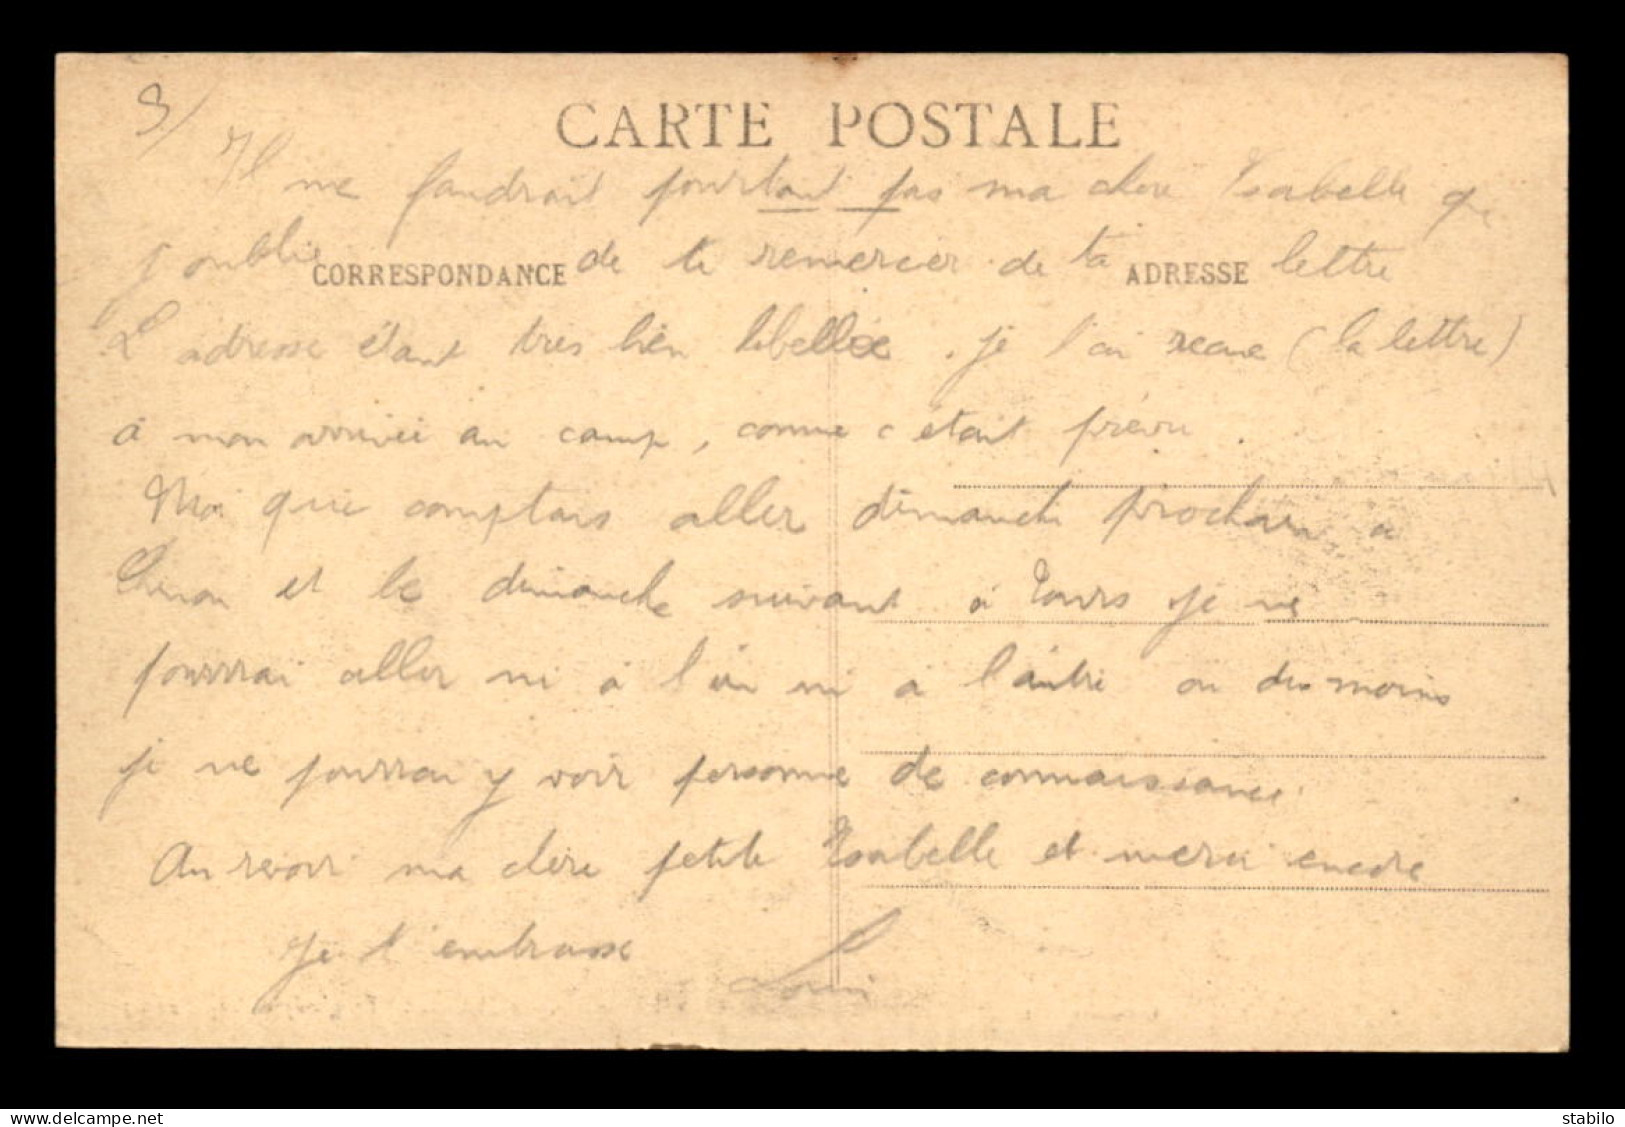 3/
CARTE POSTALE
Il ne faudrait pourtant pas ma chère Isabelle que
j'oublie de te remercier de ta lettre
CORRESPONDANCE ADRESSE
L'adresse étant très bien libellée. je l'ai recue (la lettre)
à mon arrivée au camp, comme c'était prévu.
Moi qui comptais aller dimanche prochain à
Chinon et le dimanche suivant à Tours je ne
pourrai aller ni à l'un ni à l'autre ou du moins
je ne pourrai y voir personne de connaissance.
Au revoir ma chère petite Isabelle et merci encore
Je t'embrasse Louis
delcampe.net
stabilo